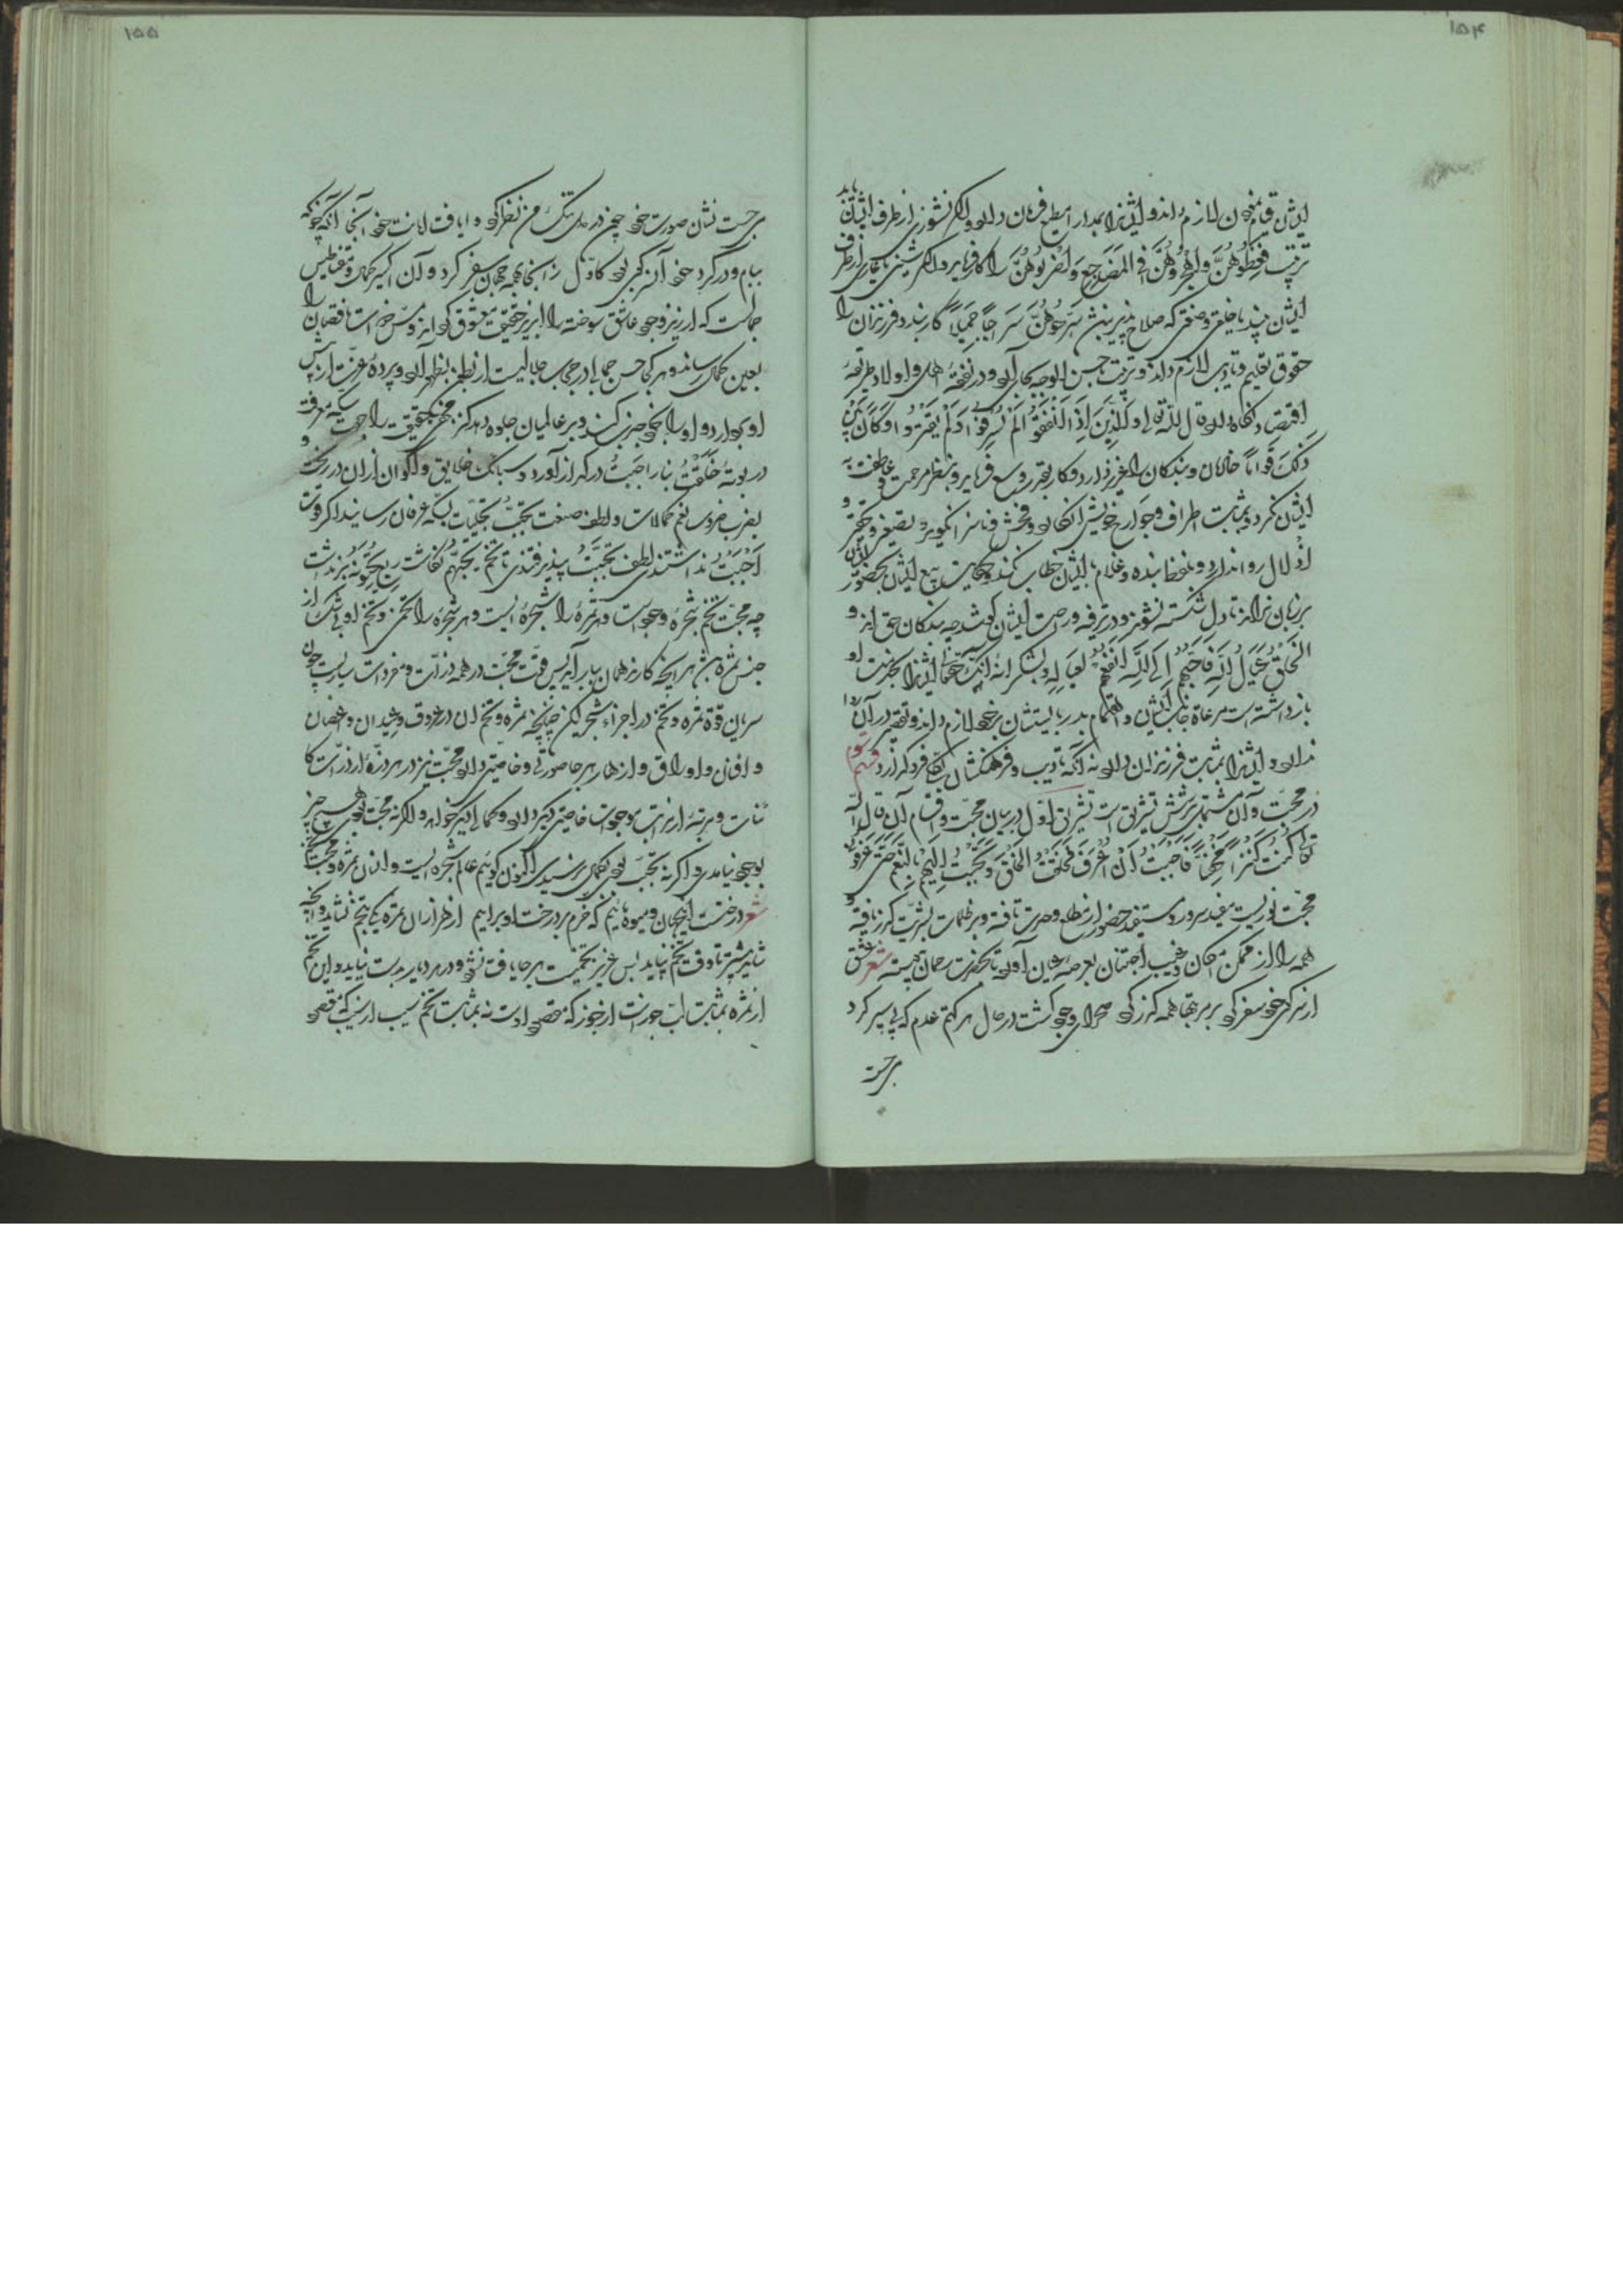 ۱۵۴
ایشان قیام نمودن لازم داند و ایشانرا بمدارا مطیع فرمان دارد و اگر نشوزی از طرف ایشان باید
ترتیب فَعِظُوهُنَّ وَاهْجُرُوهُنَّ فِی الْمَضَاجِعِ وَاضْرِبُوهُنَّ را کار فرماید و اگر از طرف
ایشان بیند یا خلقی و صنعتی که صلاح پذیر نباشد سَرِّحُوهُنَّ سَرَاحًا جَمِیلًا کار بندد و فرزندان را
حقوق تعلیم و تادیب لازم داند و تربیت باحسن الوجه بجای آرد و در نفقهٔ اهل و اولاد طریقهٔ
اقتصاد نگاه دارد قال الله تعالی وَالَّذِینَ إِذَا أَنْفَقُوا لَمْ یُسْرِفُوا وَلَمْ یَقْتُرُوا وَكَانَ بَیْنَ
ذَلِكَ قَوَامًا خادمان و بندگان را عزیز دارد و کار بقدر وسع فرماید و بنظر مرحمت و عاطفت به
ایشان نگرد و بمثابت اطراف و جوارح خویش انگارد و فحش و ناسزا نگوید و تصغیر و تحقیر و
اذلال روا ندارد و بلفظ بنده و غلام با ایشان خطاب نکند و حکایت بیع ایشان بحضور ایشان
بر زبان نراند تا دل شکسته نشوند و در ترفیه و راحت ایشان کوشد چه بندگان حق اند و
الْخَلْقُ عِیَالُ اللهِ فَاَحَبُّهُمْ اِلَی اللهِ اَنْفَعُهُمْ لِعِیَالِهِ و بشکرانهٔ آنکه حق تعالی ایشانرا بخدمت او
بازداشته است مراعاة جانب ایشان و اهتمام بدربایستشان بر خود لازم داند و تقصیر در آن روا
ندارد و ایشانرا بمثابت فرزندان دارد نه آنکه تادیب و فرهنگشان نکند فرو گذارد قسم سوم
در محبت و آن مشتمل بر شش تشریق است تشریق اول در بیان محبت و اقسام آن قال الله
تعالی كُنْتُ كَنْزًا مَخْفِیًّا فَاَحْبَبْتُ اَنْ اُعْرَفَ فَخَلَقْتُ الْخَلْقَ وَتَحَبَّبْتُ اِلَیْهِمْ بِالنِّعَمِ حَتَّى عَرَفُونِی
محبت نوریست مفید سرور و مستفید حضور از مطلع وحدت تافته و بر ظلمات بشریت گذر یافته و
همه را از مکمن امکان و غیب اجتنان بعرصهٔ اعیان آورده تا بحضرت رحمان شعر عشق
از سر کوی خود سفر کرد بر مرتبها همه گذر کرد صحرای وجود گشت در حال هر کتم عدم که پی سپر کرد
می‌جست
۱۵۵
می‌جست نشان صورت خود چون در دل تنگ من نظر کرد وا یافت امانت خود آنجا آنگه چو نگه
ببام و در کرد خود آن کجی بود کاول زانجا بهمه جهان سفر کرد و آن اکسیر کمال و مغناطیس
جمالست که ارزیز وجود عاشق سوخته را ابریز حقیقت معشوق گرداند و مس خواست ناقصان را
بعین کمال رساند و هر کجا حسن جمالی در حجاب جلالیست از بطون بظهور آرد و پردهٔ عزت از پیش
او بردارد و او را بخود جذب کند و بر عالمیان جلوه دهد کنز مخفی حقیقت را جهت سکهٔ معرفت
در بوتهٔ خَلَقْتُ بنار اَحْبَبْتُ در گداز آورد و سبائک خلایق و اکوان از ان در ریخت و
بضرب ضروب نعم کمالات و لطف صنعت تَحَبَّبْتُ بتجلیات بسکه عرفان رسانید اگر قوت
اَحْبَبْتُ نداشتندی لطف تَحَبَّبْتُ پذیرفتندی تا تخم یُحِبُّهُمْ نکاشت ریع یُحِبُّونَهُ برنداشت
چه محبت تخم شجرهٔ وجود است و هر ثمره را شجره‌ایست و هر شجره را تخمی و تخم او بی‌شک از
جنس ثمره باشد هر آنچه کارند همان بار آید پس قوت محبت در همه ذرات و مفردات ساریست چون
سریان قوة ثمره و تخم در اجزاء شجر لیکن چنانچه ثمره و تخم ان در عروق و عیدان و اغصان
و افنان و اوراق و ازهار هر جا صورتی و خاصیتی دارد محبت نیز در هر ذرهٔ از ذرات کا
ئنات و مرتبهٔ از مراتب موجودات خاصیتی دیگر دارد و کمالی دیگر خواهد و اگر نه محبت بودی هیچ چیز
بوجود نیامدی و اگر نه تحبب بودی بکمال نرسیدی اکنون گوئیم عالم شجره‌ایست و انسان ثمره و محبت تخم
شعر درختست اینجهان و میوه مائیم که خرم بر درخت او برآییم از هزاران ثمره یکی تخم نشاید و آنچه
شاید بیشتر تا وقت تخم نپاید بس عزیز تخمیست هر جا یافت نشود و در هر دیار بدست نیاید و این تخم
از ثمره بمثابت لب جوزست از جوز که مقصود اوست نه بمثابت تخم سیب از سیب که مقصود